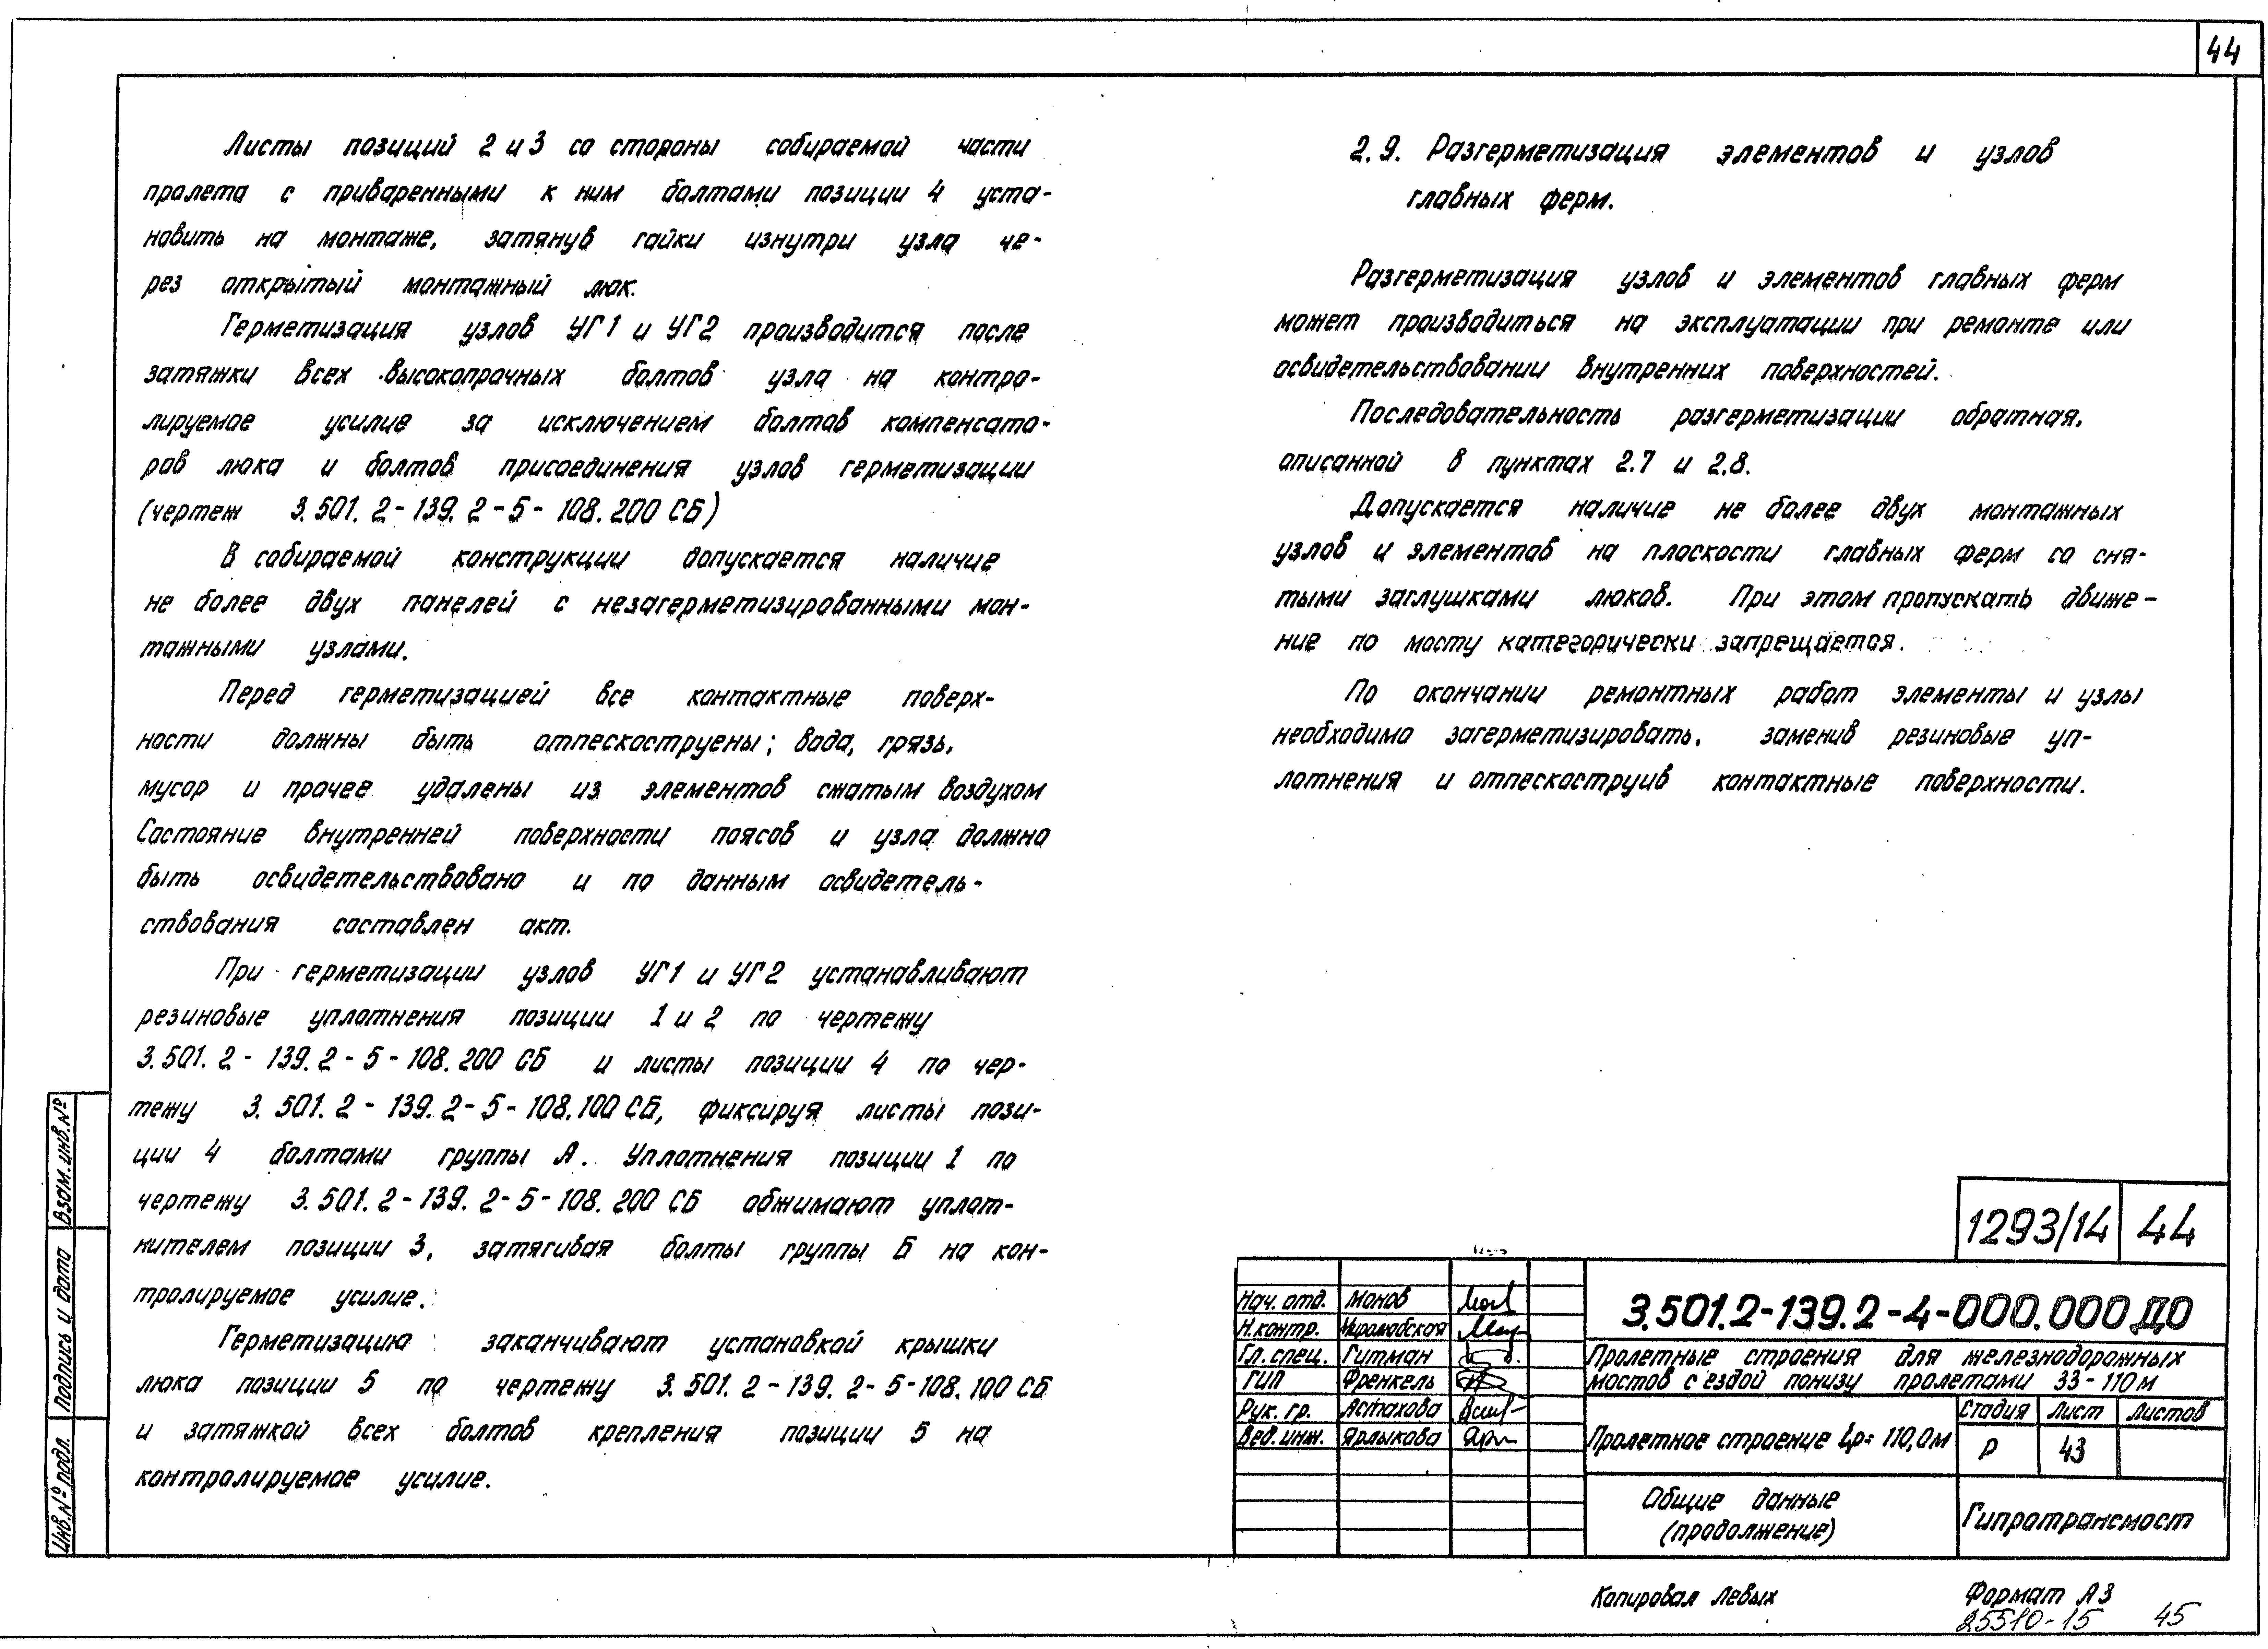 44
Листы позиций 2 и 3 со стороны собираемой части
пролета с приваренными к ним болтами позиции 4 уста-
новить на монтаже, затянув гайки изнутри узла че-
рез открытый монтажный люк.
Герметизация узлов УГ1 и УГ2 производится после
затяжки всех высокопрочных болтов узла на контро-
лируемое усилие за исключением болтов компенсато-
ров люка и болтов присоединения узлов герметизации
(чертеж 3.501.2-139.2-5-108.200 СБ)
В собираемой конструкции допускается наличие
не более двух панелей с незагерметизированными мон-
тажными узлами.
Перед герметизацией все контактные поверх-
ности должны быть отпескоструены; вода, грязь,
мусор и прочее удалены из элементов сжатым воздухом
Состояние внутренней поверхности поясов и узла должно
быть освидетельствовано и по данным освидетель-
ствования составлен акт.
При герметизации узлов УГ1 и УГ2 устанавливают
резиновые уплотнения позиции 1 и 2 по чертежу
3.501.2-139.2-5-108.200 СБ и листы позиции 4 по чер-
тежу 3.501.2-139.2-5-108.100 СБ, фиксируя листы пози-
ции 4 болтами группы А. Уплотнения позиции 1 по
чертежу 3.501.2-139.2-5-108.200 СБ обжимают уплот-
нителем позиции 3, затягивая болты группы Б на кон-
тролируемое усилие.
Герметизацию заканчивают установкой крышки
люка позиции 5 по чертежу 3.501.2-139.2-5-108.100 СБ
и затяжкой всех болтов крепления позиции 5 на
контролируемое усилие.
2.9. Разгерметизация элементов и узлов
главных ферм.
Разгерметизация узлов и элементов главных ферм
может производиться на эксплуатации при ремонте или
освидетельствовании внутренних поверхностей.
Последовательность разгерметизации обратная,
описанной в пунктах 2.7 и 2.8.
Допускается наличие не более двух монтажных
узлов и элементов на плоскости главных ферм со сня-
тыми заглушками люков. При этом пропускать движе-
ние по мосту категорически запрещается.
По окончании ремонтных работ элементы и узлы
необходимо загерметизировать, заменив резиновые уп-
лотнения и отпескоструив контактные поверхности.
Взам. инв. №
Подпись и дата
Инв. № подл.
1293/14 44
3.501.2-139.2-4-000.000 ДО
Нач. отд. Монов
Н. контр.
Гл. спец. Гитман
ГИП Френкель
Рук. гр. Астахова
Вед. инж. Ярлыкова
Пролетные строения для железнодорожных
мостов с ездой понизу пролетами 33-110 м
Пролетное строение Lp= 110,0м
Стадия Лист Листов
Р 43
Общие данные
(продолжение)
Гипротрансмост
Копировал Левых
Формат А3
25510-15 45